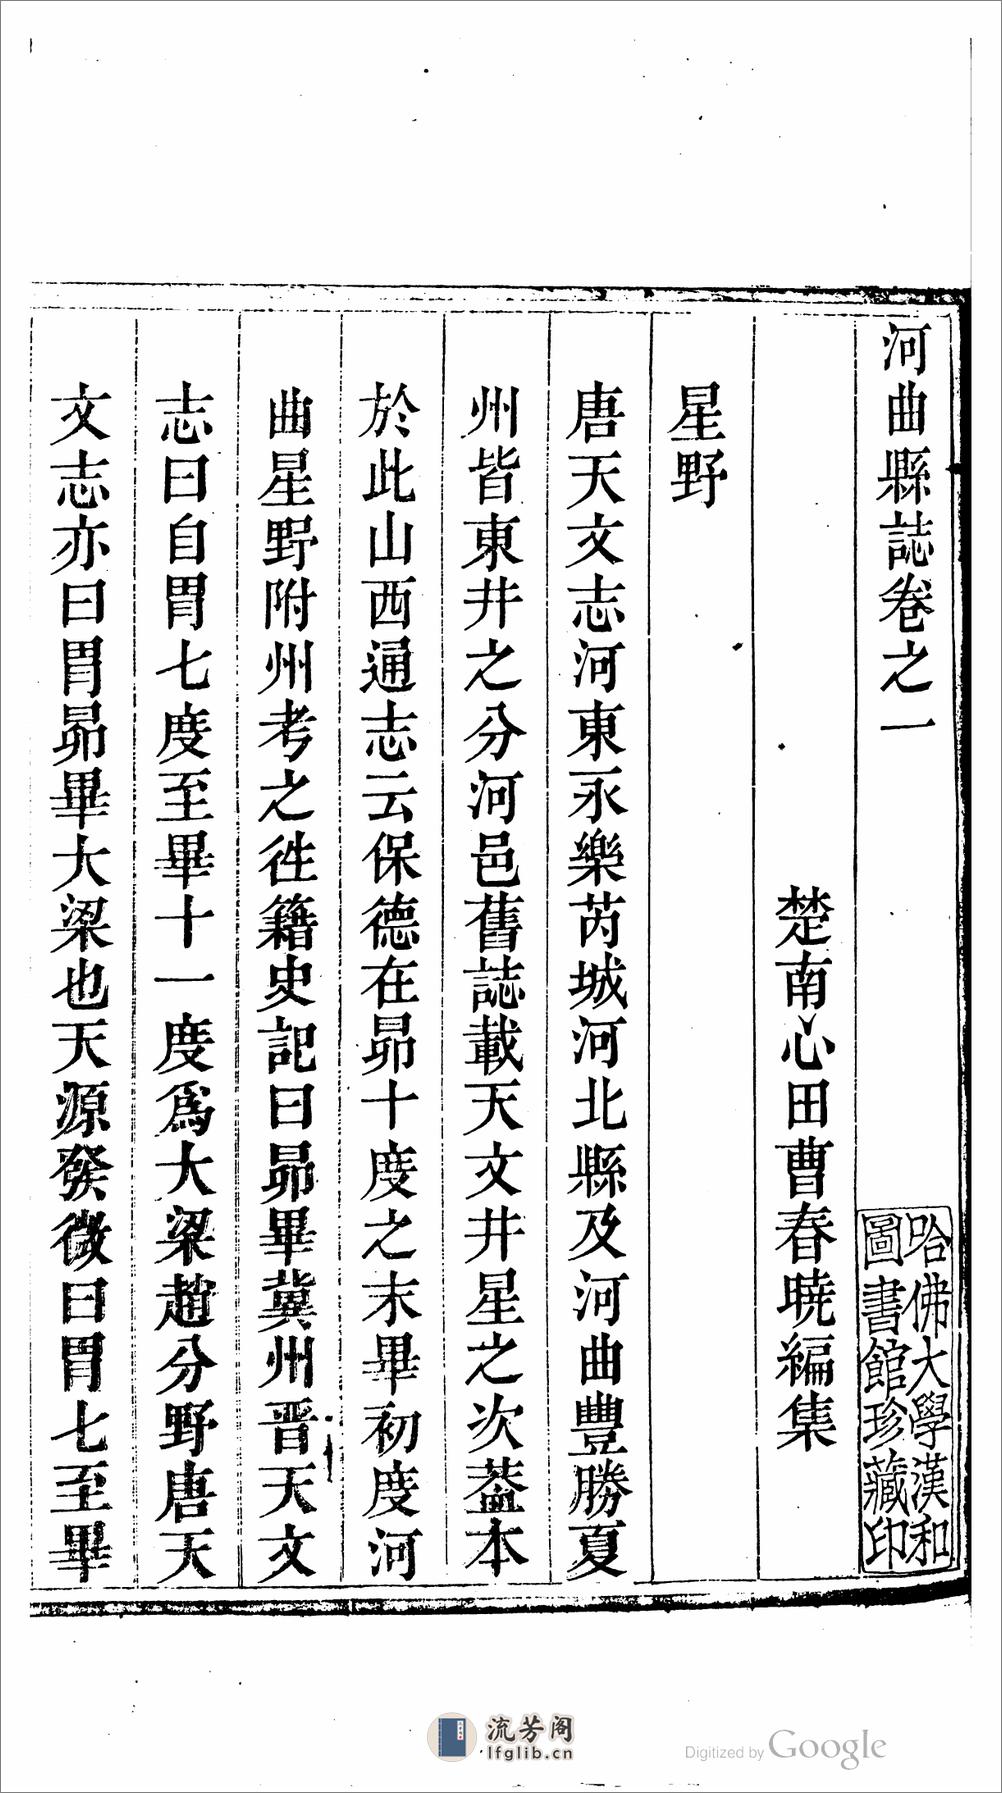 河曲縣誌卷之一
楚南心田曹春曉編集
星野
唐天文志河東永樂芮城河北縣及河曲豐勝夏
州皆東井之分河邑舊誌載天文井星之次葢本
於此山西通志云保德在昴十度之末畢初度河
曲星野附州考之徃籍史記曰昴畢冀州晋天文
志曰自胃七度至畢十一度爲大梁趙分野唐天
文志亦曰胃昴畢大梁也天源發微曰胃七至畢
哈佛大學漢和
圖書館珍藏印
流芳阁
lfglib.cn
Digitized by Google